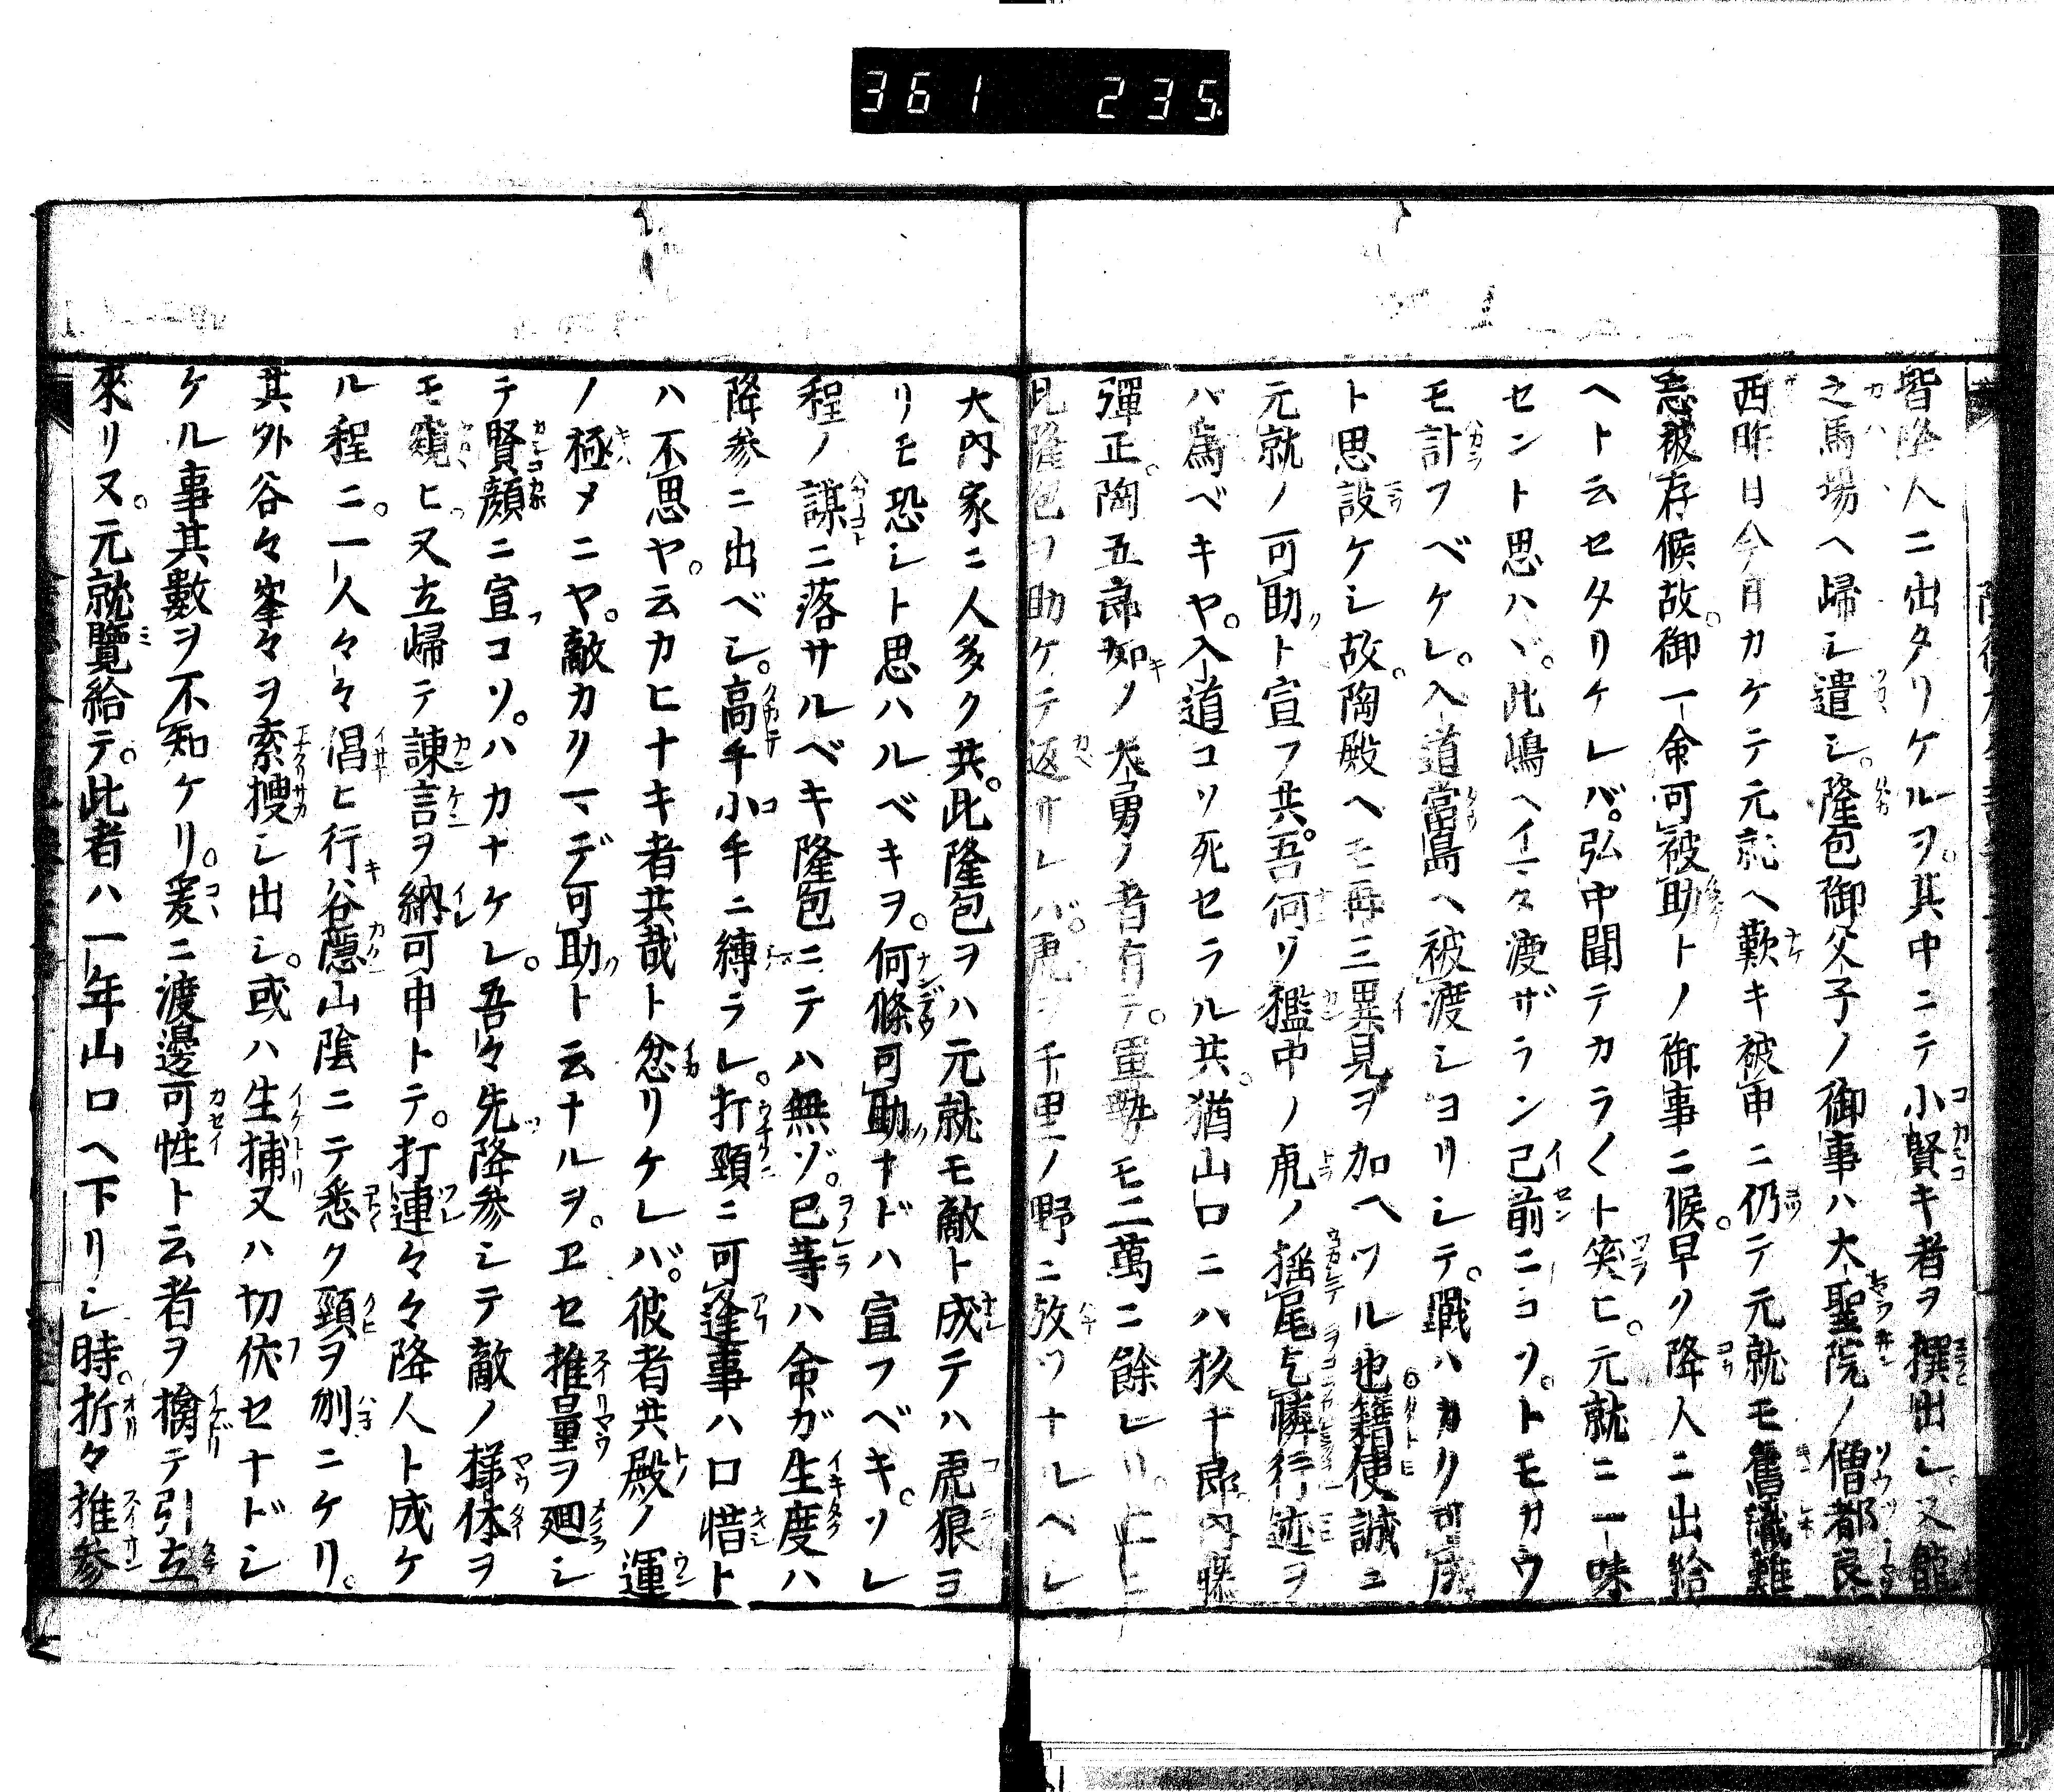 361 235
皆降人ニ出タリケルヲ。其中ニテ小賢キ者ヲ撰出シ。又龍
之馬場ヘ歸シ遣シ。隆包御父子ノ御事ハ大聖院ノ僧都良
西昨日今日カケテ元就ヘ歎キ被申ニ仍テ元就モ舊識難
忘被存候故。御一命可被助トノ御事ニ候。早ク降人ニ出給
ヘト云セタリケレバ。弘中聞テカラ〱ト笑ヒ。元就ニ一味
セント思ハヾ。此嶋ヘイマタ渡ザラン已前ニコソ。トモカウ
モ計フベケレ。入道當島ヘ被渡シヨリシテ。戰ハカリ可成
ト思設ケシ故。陶殿ヘモ再三異見ヲ加ヘツル也。籍使誠ニ
元就ノ可助ト宣フ共。吾何ゾ檻中ノ虎ノ揺尾乞憐行迹ヲ
バ爲ベキヤ。入道コソ死セラル共。猶山口ニハ杉十郎内藤
彈正。陶五郎如ノ大勇ノ者有テ。軍勢モ二萬ニ餘レリ。
此隆包ヲ助ケテ返サレバ。虎ヲ千里ノ野ニ放ツナルヘレ
大内家ニ人多ク共。此隆包ヲハ元就モ敵ト成テハ虎狼ヨ
リモ恐シト思ハルベキヲ。何條可助ナドハ宣フベキ。ソレ
程ノ謀ニ落サルベキ隆包ニテハ無ゾ。已等ハ命ガ生度ハ
降參ニ出ベシ。高手小手ニ縛ラレ。打頸ニ可逢事ハ口惜ト
ハ不思ヤ。云カヒナキ者共哉ト忿リケレバ。彼者共殿ノ運
ノ極メニヤ。敵カリマデ可助ト云ナルヲ。ヱセ推量ヲ廻シ
テ賢顔ニ宣コソ。ハカナケレ。吾々先降參シテ敵ノ様体ヲ
モ窺ヒ又立歸テ諌言ヲ納可申トテ。打連々々降人ト成ケ
ル程ニ。一人々々倡ヒ行谷隱山陰ニテ悉ク頸ヲ刎ニケリ。
其外谷々峯々ヲ索捜シ出シ。或ハ生捕又ハ切伏セナドシ
ケル事其數ヲ不知ケリ。爰ニ渡邊可性ト云者ヲ擒テ引立
來リヌ。元就覽給テ。此者ハ一年山口ヘ下リシ時。折々推參